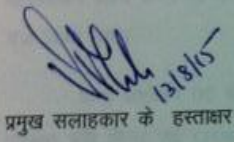 13/8/15
प्रमुख सलाहकार के हस्ताक्षर